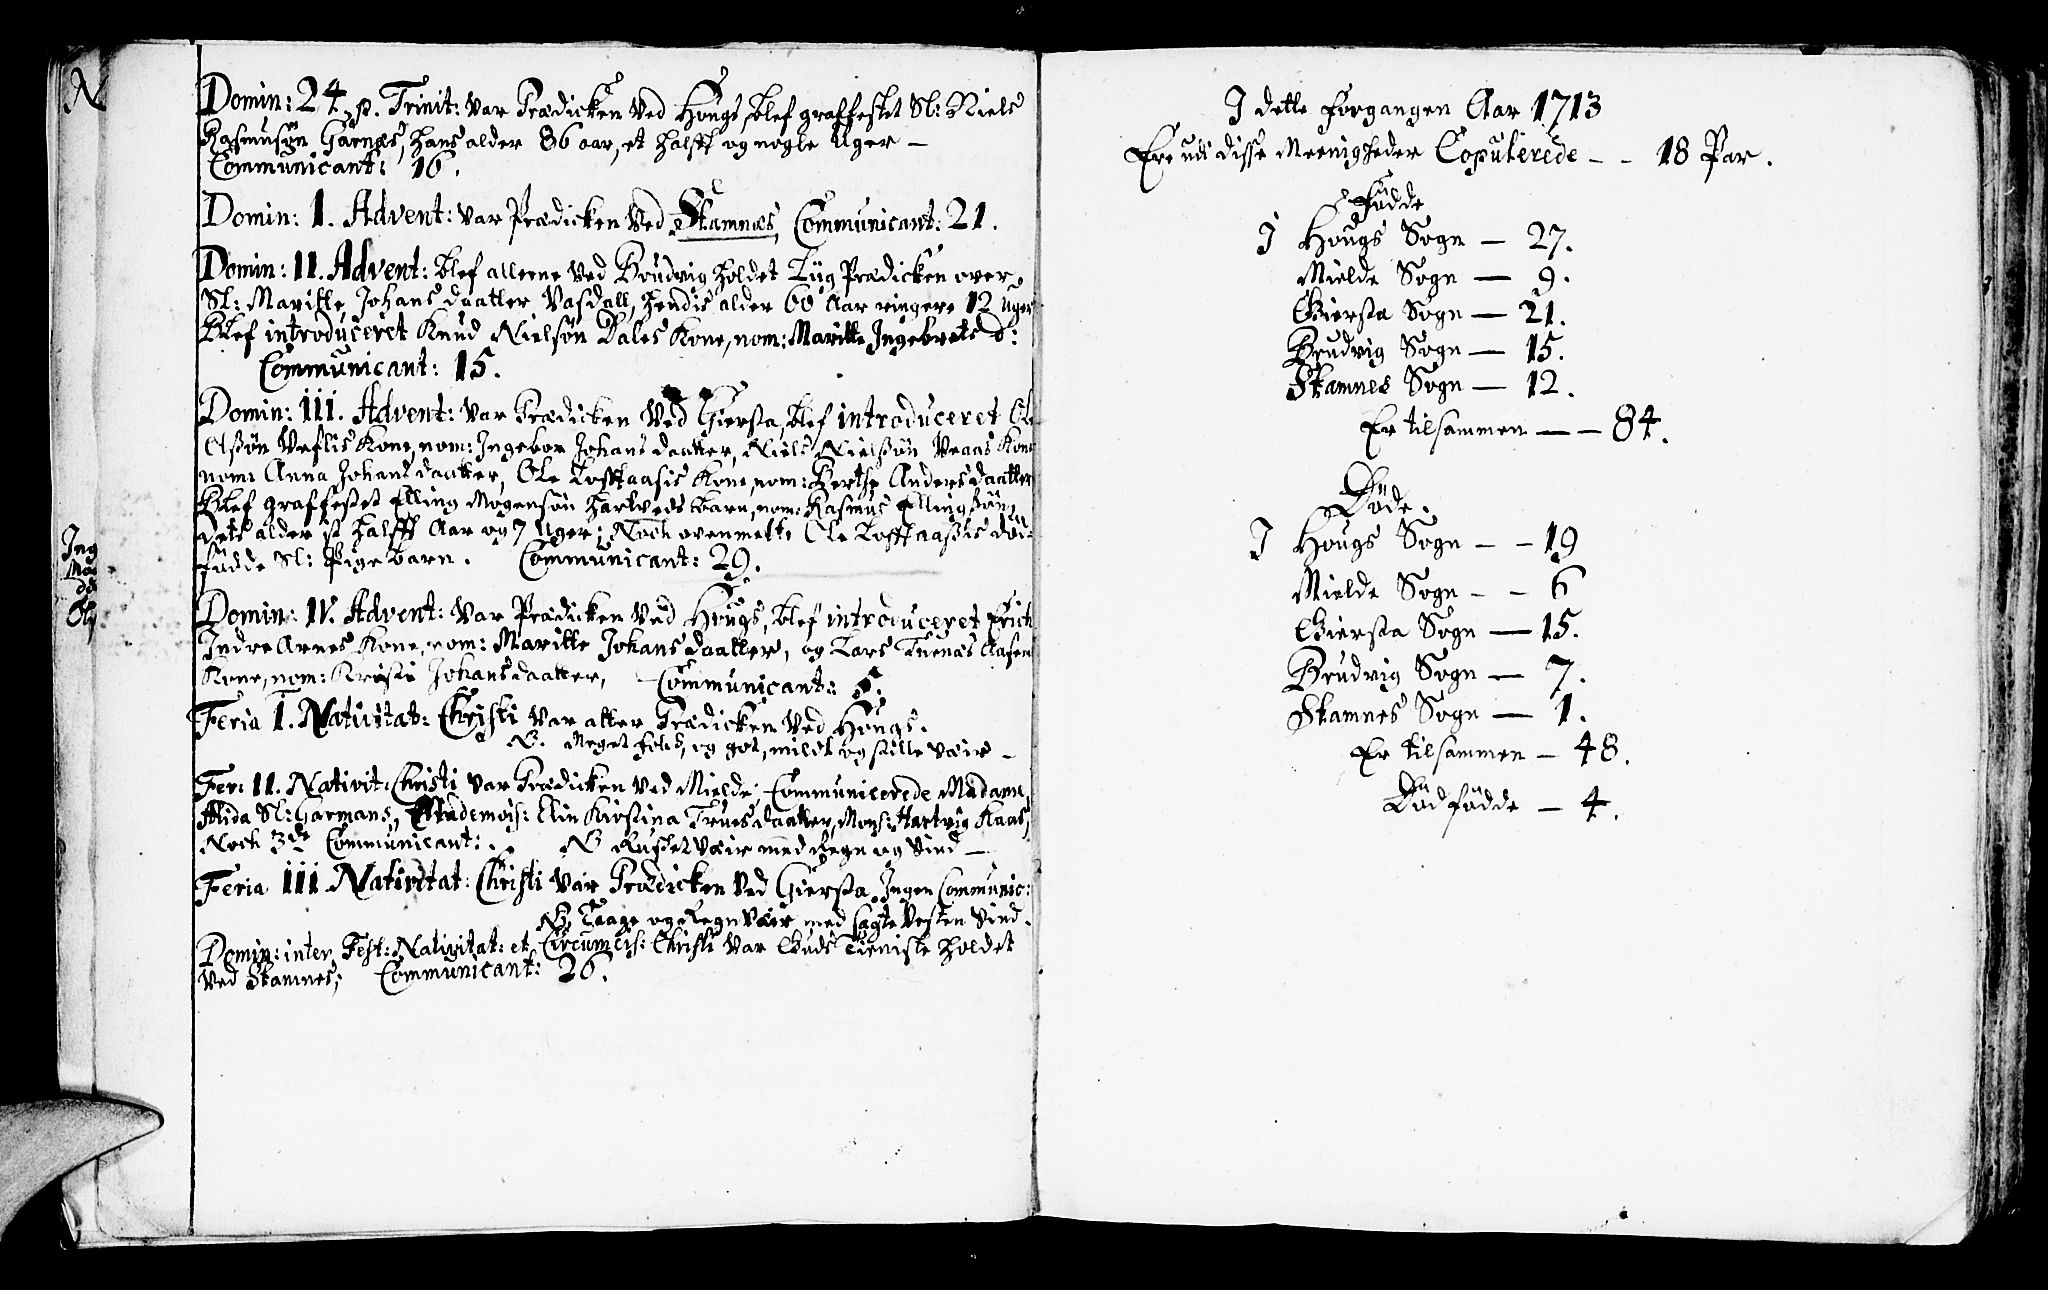 N
Domin: 24. p. Trinit: var Prædicken ved Hougs, blef graffestet Sl: Niels
Rasmusøn Garnæs, hans alder 86 aar, et halfft og nogle Uger –
Communicant: 16.
Domin: I. Advent: var Prædicken ved Skamnæs, Communicant: 21.
Domin: II. Advent: blef alleene ved Brudvig holdet Liig Prædicken over
Sl: Maritte Johans daatter Vasdall, hendis alder 60 Aar ringere 12 Uger
Blef introduceret Knud Nielsøn Dales Kone, nom: Maritte Ingebrets d:
Communicant: 15.
Domin: III. Advent: var Prædicken ved Giersta, blef introduceret Ole
Olsøn Veflis Kone, nom: Ingebor Johans daatter, Niels Nielsøn Veaas Kone
nom: Anna Johans daatter, Ole Tofftaasis Kone, nom: Berthe Anders daatter
Blef graffestet Elling Mogensøn Hartveds barn, nom: Rasmus Ellingsøn,
dets alder it halfft Aar og 7 Uger; Noch ovenmelte Ole Tofftaassis død-
fødde Sl: Pige barn. Communicant: 29.
Ing
Mo
da
Ol
Domin: IV. Advent: var Prædicken ved Hougs, blef introduceret Erich
Indre Arnes Kone, nom: Maritte Johans daatter, og Lars Tuenæs Aasen
Kone, nom: Kristi Johans daatter, Communicant: 5.
Feria I. Nativitat: Christi var atter Prædicken ved Hougs.
N. Meget folk, og got, mildt og stille væir –
Fer: II. Nativit: Christi var Prædicken ved Mielde. Communicerede Madame
Alida Sl: Garmans, Mademois: Elin Kirstina Trues daatter, Mons: Hartvig Kaas,
Noch 3de Communicant: . . NB Rusket væir med Regn og Vind –
Feria III Nativitat: Christi var Prædicken ved Giersta. Ingen Communic:
NB Taage og Regn væir med sagte Vesten Vind.
Domin: inter Fest: Nativitat: et Circumcis: Christi var Guds Tieniste holdet
ved Skamnes; Communicant: 26.
I dette forgangen Aar 1713
Ere udi disse Meenigheder Copulerede – – 18 Par.
Fødde
I Hougs Sogn – 27.
Mielde Sogn – 9.
Giersta Sogn – 21.
Brudvig Sogn – 15.
Skamnes Sogn – 12.
Er tilsammen – – 84.
Døde.
I Hougs Sogn – – 19
Mielde Sogn – – 6
Giersta Sogn – 15.
Brudvig Sogn – 7.
Skamnes Sogn – 1.
Er tilsammen – 48.
Død fødde – 4.